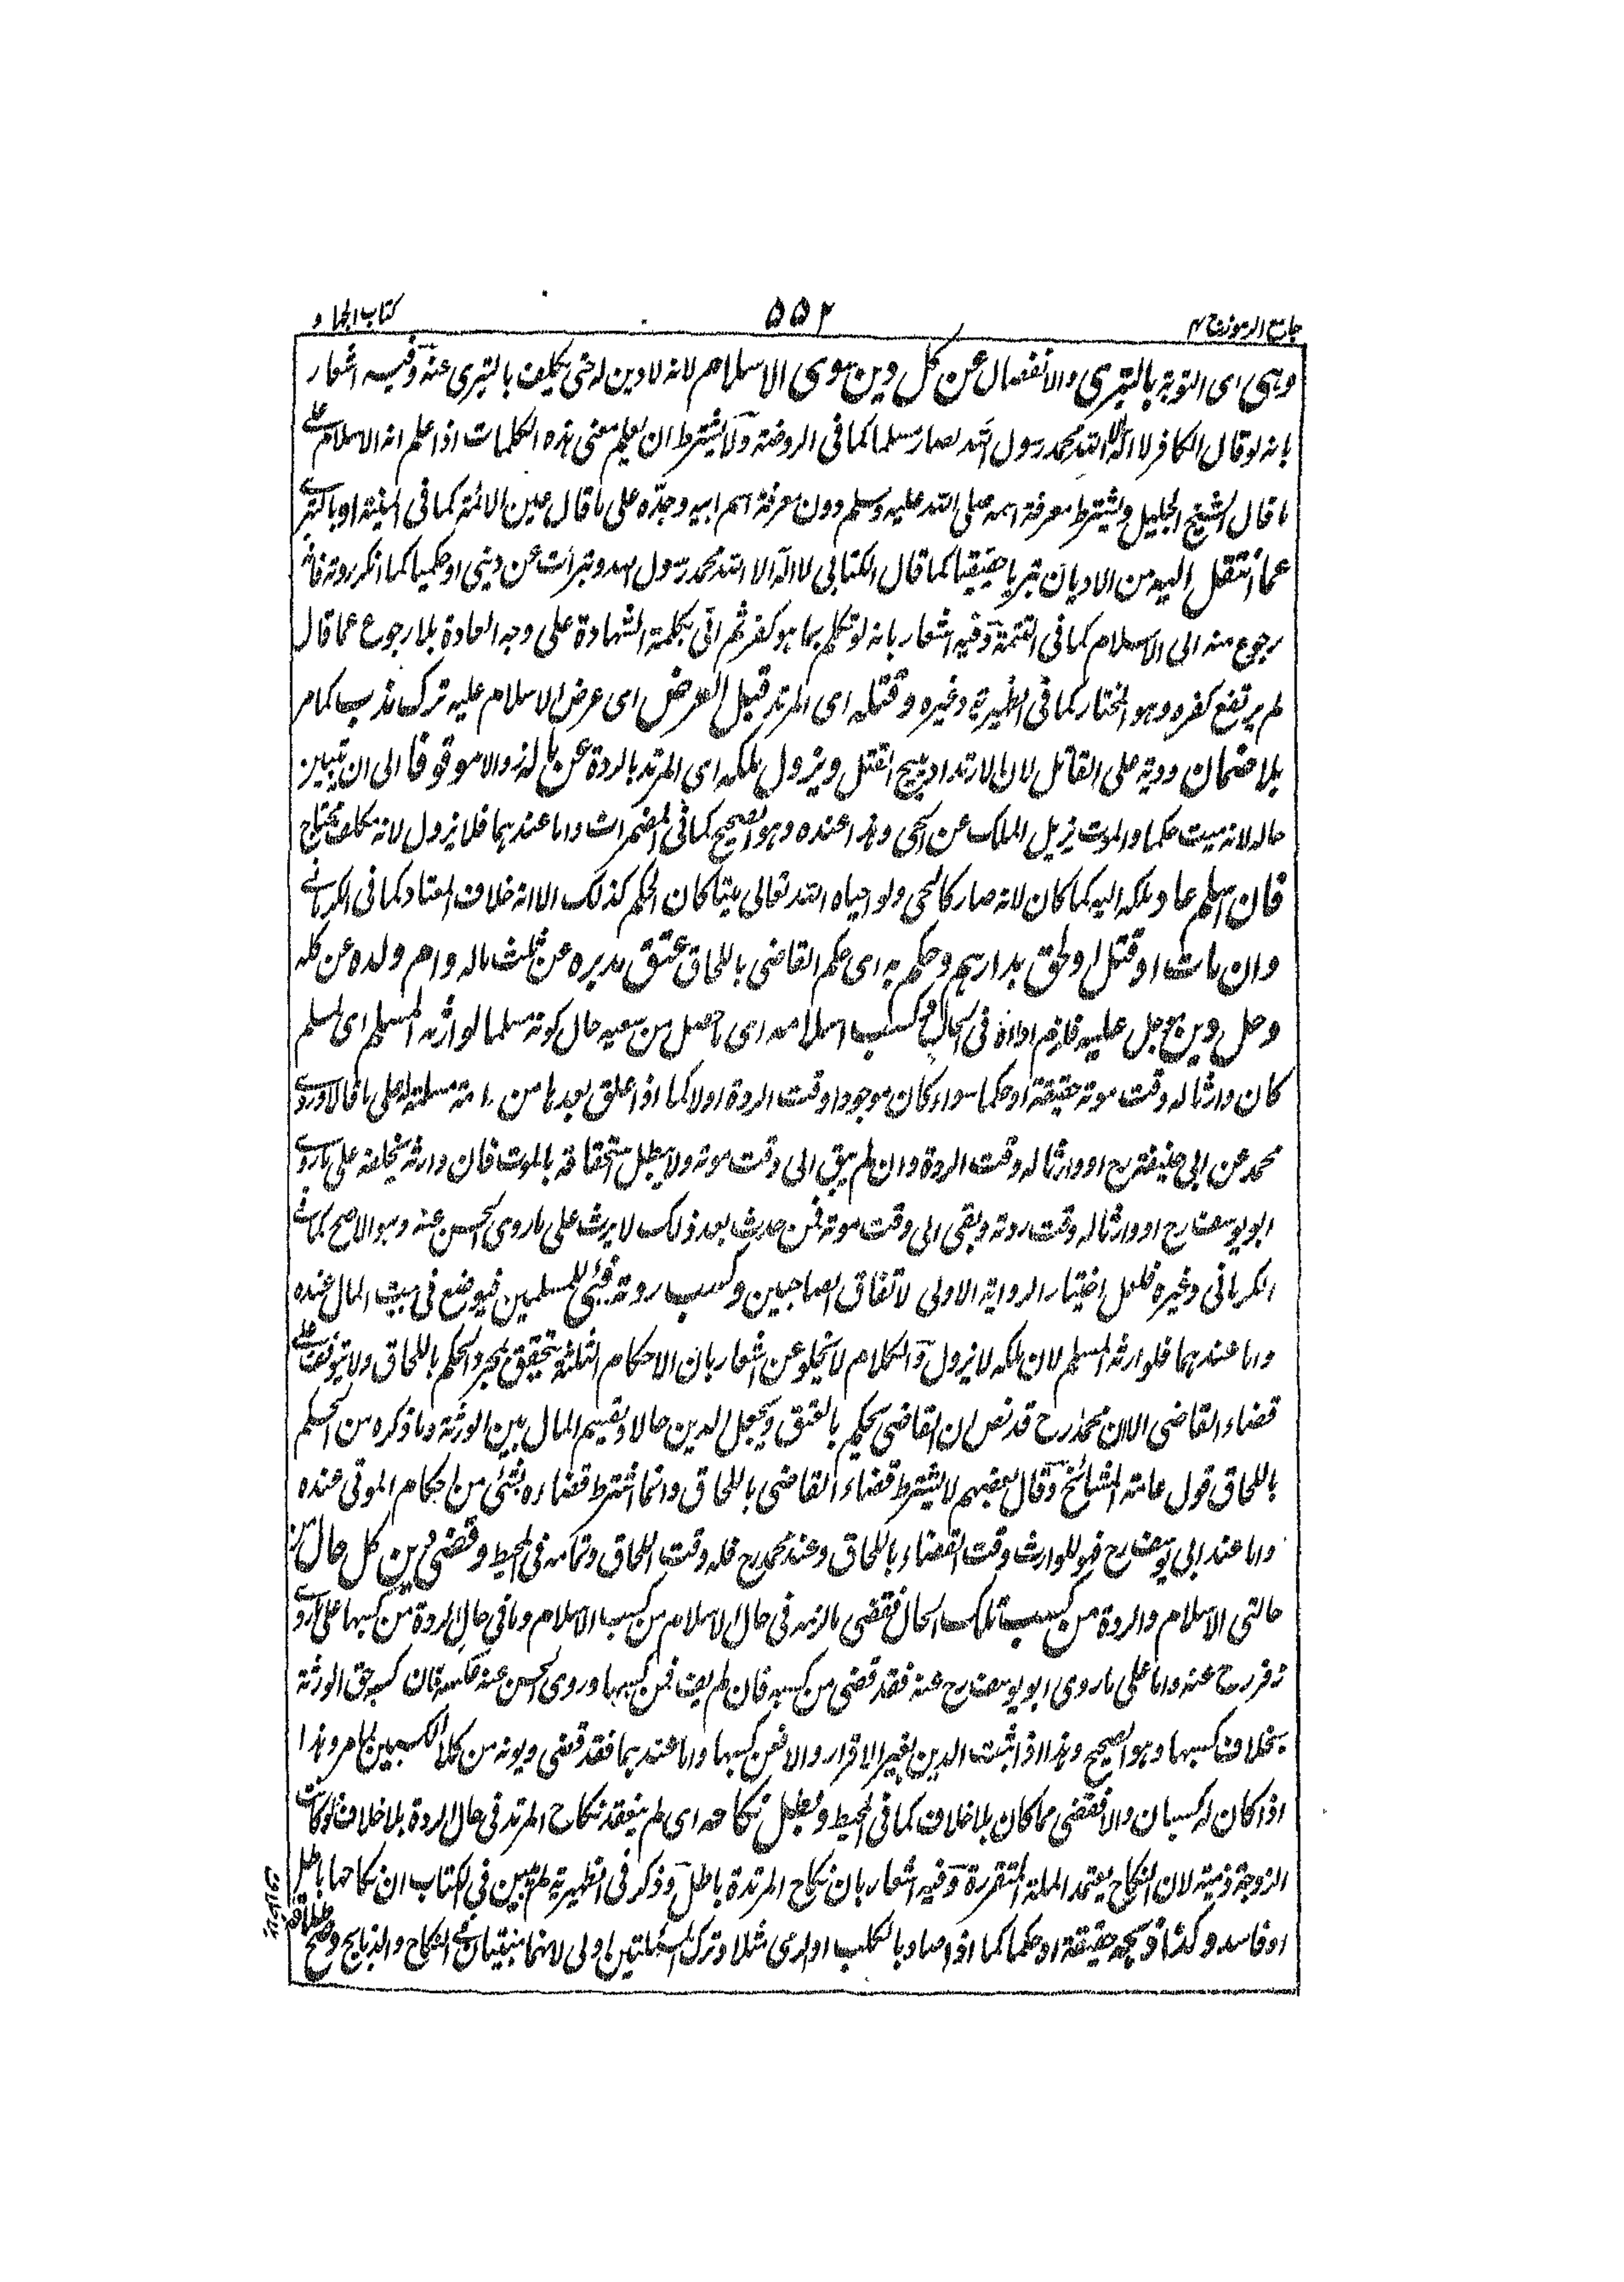 جامع الرموز ج ٢
٥٥٢
كتاب الجهاد
وهي اي التوبة بالتبري والانفصال عن كل دين سوى الاسلام لانه لا دين له حتى يكلف بالتبري عنه وفيه اشعار
بانه لو قال الكافر لا اله الا الله محمد رسول الله صار مسلما كما في الروضة ولا يشترط ان يعلم معنى هذه الكلمات اذا علم انه الاسلام على
ما قال الشيخ الجليل ويشترط معرفة اسمه صلى الله عليه وسلم دون معرفة اسم ابيه وجده على ما قال عين الائمة كما في المنية او بالتبري
عما انتقل اليه من الاديان تبريا حقيقيا كما قال الكتابي لا اله الا الله محمد رسول الله وتبرأت عن ديني او حكميا كما انكر ردته فانه
رجوع منه الى الاسلام كما في التتمة وفيه اشعار بانه لو تكلم بما هو كفر ثم اتى بكلمة الشهادة على وجه العادة بلا رجوع عما قال
لم يرتفع كفره وهو المختار كما في الظهيرية وغيره وقتله اى المرتد قبل العرض اى عرض الاسلام عليه ترك ندب كما مر
بلا ضمان ودية على القاتل لان الارتداد يبيح القتل ويزول ملكه اى المرتد بالردة عن ماله زوالا موقوفا الى ان يتبين
حاله لانه ميت حكما والموت يزيل الملك عن الحي وهذا عنده وهو الصحيح كما في المضمرات واما عندهما فلا يزول لانه مكلف محتاج
فان اسلم عاد ملكه اليه كما كان لانه صار كالحي ولو احياه الله تعالى ميتا كان الحكم كذلك الا انه خلاف المعتاد كما في الكرماني
وان مات او قتل او لحق بدارهم وحكم به اى حكم القاضي باللحاق عتق مدبره عن ثلث ماله وام ولده عن كله
وحل دين مؤجل عليه فلزم اداؤه في الحال وكسب اسلامه اى ما حصل من سعيه حال كونه مسلما لوارثه المسلم اى لمسلم
كان وارثا له وقت موته حقيقة او حكما سواء كان موجودا وقت الردة اولا كما اذا علق بعدها من امة مسلمة له على ما قالا وروى
محمد عن ابي حنيفة رح او وارثا له وقت الردة وان لم يبق الى وقت موته ولا يبطل استحقاقه بالموت فان وارثه يخلفه على ما روى
ابو يوسف رح او وارثا له وقت ردته وبقي الى وقت موته فمن حدث بعد ذلك لا يرث على ما روى الحسن عنه وهو الاصح كما في
الكرماني وغيره فلعل اختيار الرواية الاولى لاتفاق الصاحبين وكسب ردته فيئ للمسلمين فيوضع في بيت المال عنده
واما عندهما فلوارثه المسلم لان ملكه لا يزول والكلام لا يخلو عن اشعار بان الاحكام الثلثة تحقيق بمجرد الحكم باللحاق ولا يتوقف على
قضاء القاضي الا ان محمدا رح قد نص ان القاضي يحكم بالعتق ويجعل الدين حالا ويقسم المال بين الورثة وما ذكره من الحكم
باللحاق قول عامة المشائخ وقال بعضهم لا يشترط قضاء القاضي باللحاق وانما اشترط قضاؤه بشئ من احكام الموتى عنده
واما عند ابي يوسف رح فهو للوارث وقت القضاء باللحاق وعند محمد رح فله وقت اللحاق وتمامه في المحيط وقضى دين كل حال من
حالتي الاسلام والردة من كسب تلك الحال فقضى ما لزمه في حال الاسلام من كسب الاسلام وما في حال الردة من كسبها على ما روى
زفر رح عنه واما على ما روى ابو يوسف رح عنه فقد قضى من كسبه فان لم يف فمن كسبها وروى الحسن عنه عكسه فان كسبه حق الورثة
بخلاف كسبها وهو الصحيح وهذا اذا ثبت الدين بغير الاقرار والا فمن كسبها واما عندهما فقد قضى ديونه من كلا الكسبين لما مر وهذا
اذا كان له كسبان والا فقضى مما كان بلا خلاف كما في المحيط وبطل نكاحه اى لم ينعقد نكاح المرتد في حال الردة بلا خلاف ولو كانت
الزوجة ذمية لان النكاح يعتمد الملة المتقررة وفيه اشعار بان نكاح المرتدة باطل وذكر في الظهيرية لم يتبين في الكتاب ان نكاحها باطل
او فاسد وكذا ذبحه حقيقة او حكما كما اذا صاد بالكلب او الرمي مثلا وترك المسئلتين اولى لانهما مبنيتان في النكاح والذبايح وصح
طلاقه